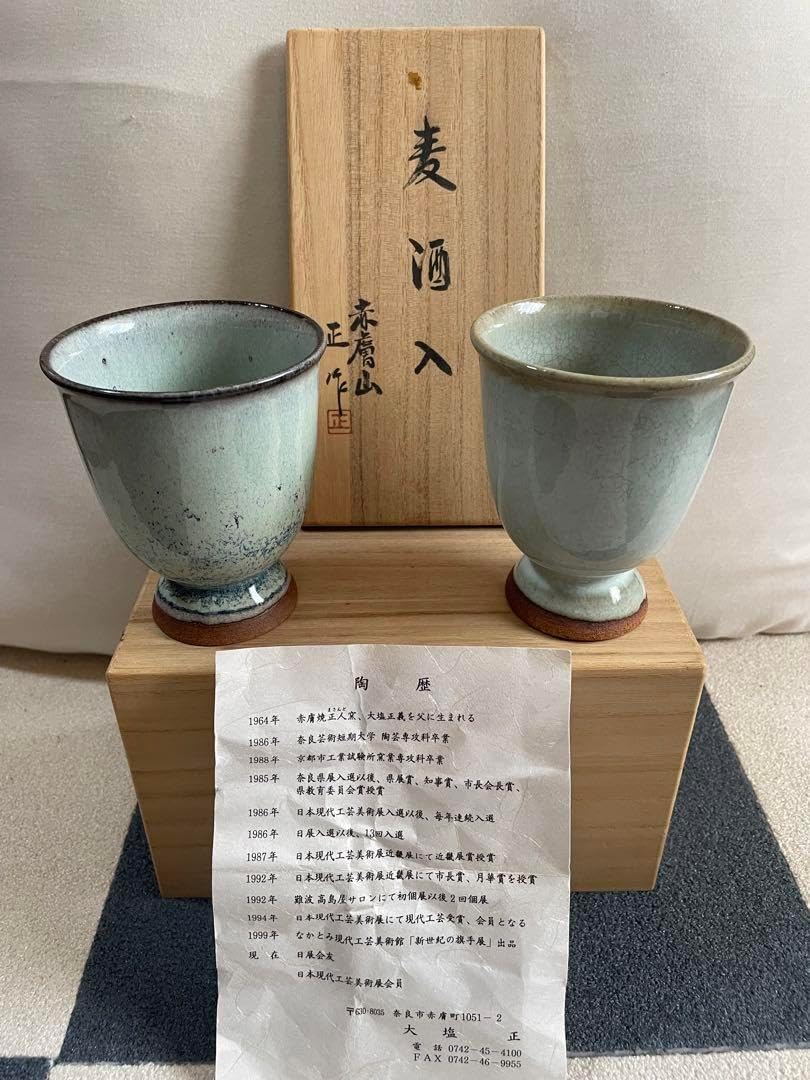 麦酒入
赤膚山
正作
正
陶歴
まさんど
1964年 赤膚焼正人窯、大塩正義を父に生まれる
1986年 奈良芸術短期大学 陶芸専攻科卒業
1988年 京都市工業試験所窯業専攻科卒業
1985年 奈良県展入選以後、県展賞、知事賞、市長会長賞、
県教育委員会賞授賞
1986年 日本現代工芸美術展入選以後、毎年連続入選
1986年 日展入選以後、13回入選
1987年 日本現代工芸美術展近畿展にて近畿展賞授賞
1992年 日本現代工芸美術展近畿展にて市長賞、月華賞を授賞
1992年 難波高島屋サロンにて初個展以後2回個展
1994年 日本現代工芸美術展にて現代工芸受賞、会員となる
1999年 なかとみ現代工芸美術館「新世紀の旗手展」出品
現在 日展会友
日本現代工芸美術展会員
〒630-8035 奈良市赤膚町1051-2
大塩 正
電話 0742-45-4100
FAX 0742-46-9955